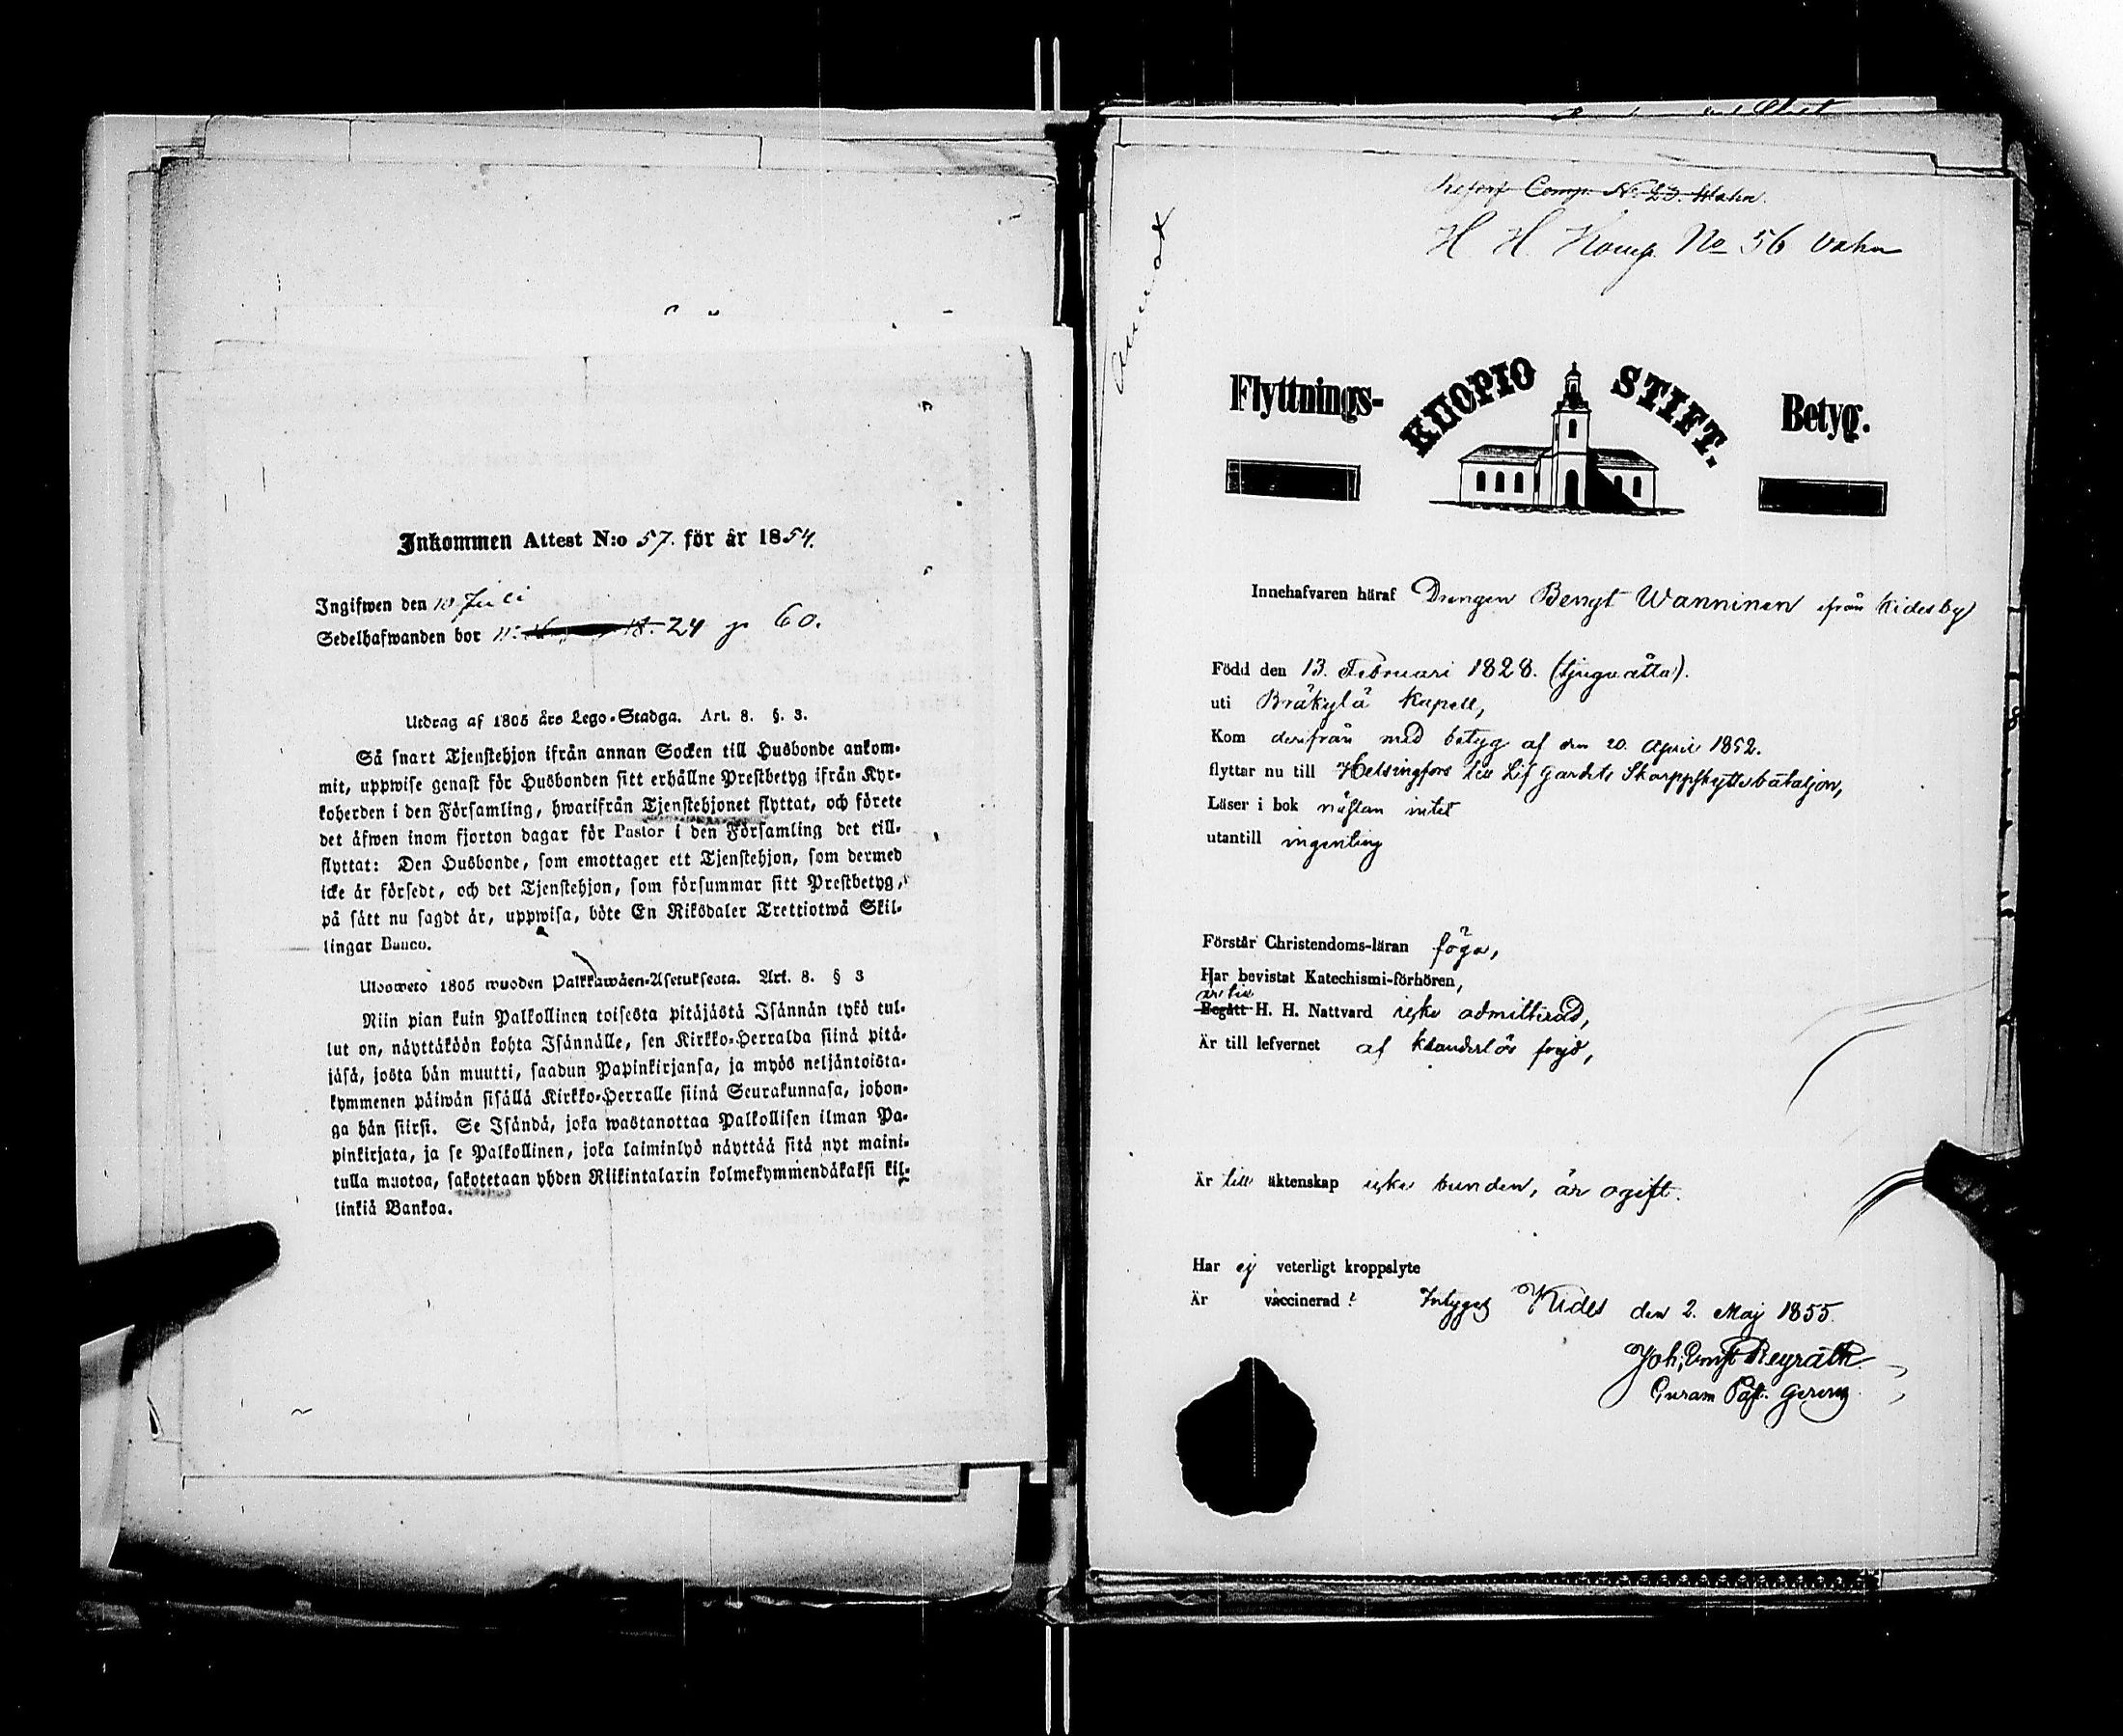 Inkommen Attest N:o 57. för år 1854.
Ingifwen den 10 Juli
Sedelhafwanden bor 24 p 60.
Utdrag af 1805 års Lego-Stadga. Art. 8. §. 3.
Så snart Tjenstehjon ifrån annan Socken till Husbonde ankom-
mit, uppwise genast för Husbonden sitt erhållne Prestbetyg ifrån Kyr-
koherden i den Församling, hwarifrån Tjenstehjonet flyttat, och förete
det äfwen inom fjorton dagar för Pastor i den Församling det till-
flyttat: Den Husbonde, som emottager ett Tjenstehjon, som dermed
icke är försedt, och det Tjenstehjon, som försummar sitt Prestbetyg,
på sätt nu sagdt är, uppwisa, böte En Riksdaler Trettiotwå Skil-
lingar Banco.
Ulosweto 1805 wuoden Palkkawäen-Asetuksesta. Art. 8. § 3
Niin pian kuin Palkollinen toisesta pitäjästä Isännän tykö tul-
lut on, näyttäköön kohta Isännälle, sen Kirkko-Herralda siinä pitä-
jäsä, josta hän muutti, saadun Papinkirjansa, ja myös neljäntoista-
kymmenen päiwän sisällä Kirkko-Herralle siinä Seurakunnasa, johon-
ga hän siirsi. Se Isändä, joka wastanottaa Palkollisen ilman Pa-
pinkirjata, ja se Palkollinen, joka laiminlyö näyttää sitä nyt maini-
tulla muotoa, sakotetaan yhden Riikintalarin kolmekymmendäkaksi kil-
linkiä Bankoa.
Comp. No 23. Wahn.
H. H. Komp. No 56 Vahn
Flyttnings- KUOPIO STIFT. Betyg.
Innehafvaren häraf Drengen Bengt Wanninen ifrån Kidesby
Född den 13. Februari 1828. (tjuguåtta).
uti Bräkylä Kapell,
Kom derifrån med betyg af den 20. April 1852.
flyttar nu till Helsingfors till Lif Gardets Skarpskyttebataljon,
Läser i bok nästan intet
utantill ingenting
Förstår Christendoms-läran föga,
Har bevistat Katechismi-förhören,
är till
Begått H. H. Nattvard icke admitterad,
Är till lefvernet af klanderlös frejd,
Är till äktenskap icke bunden, är ogift.
Har ej veterligt kroppslyte
Är vaccinerad? Intygas Kides den 2. Maj 1855.
Joh. Ernst